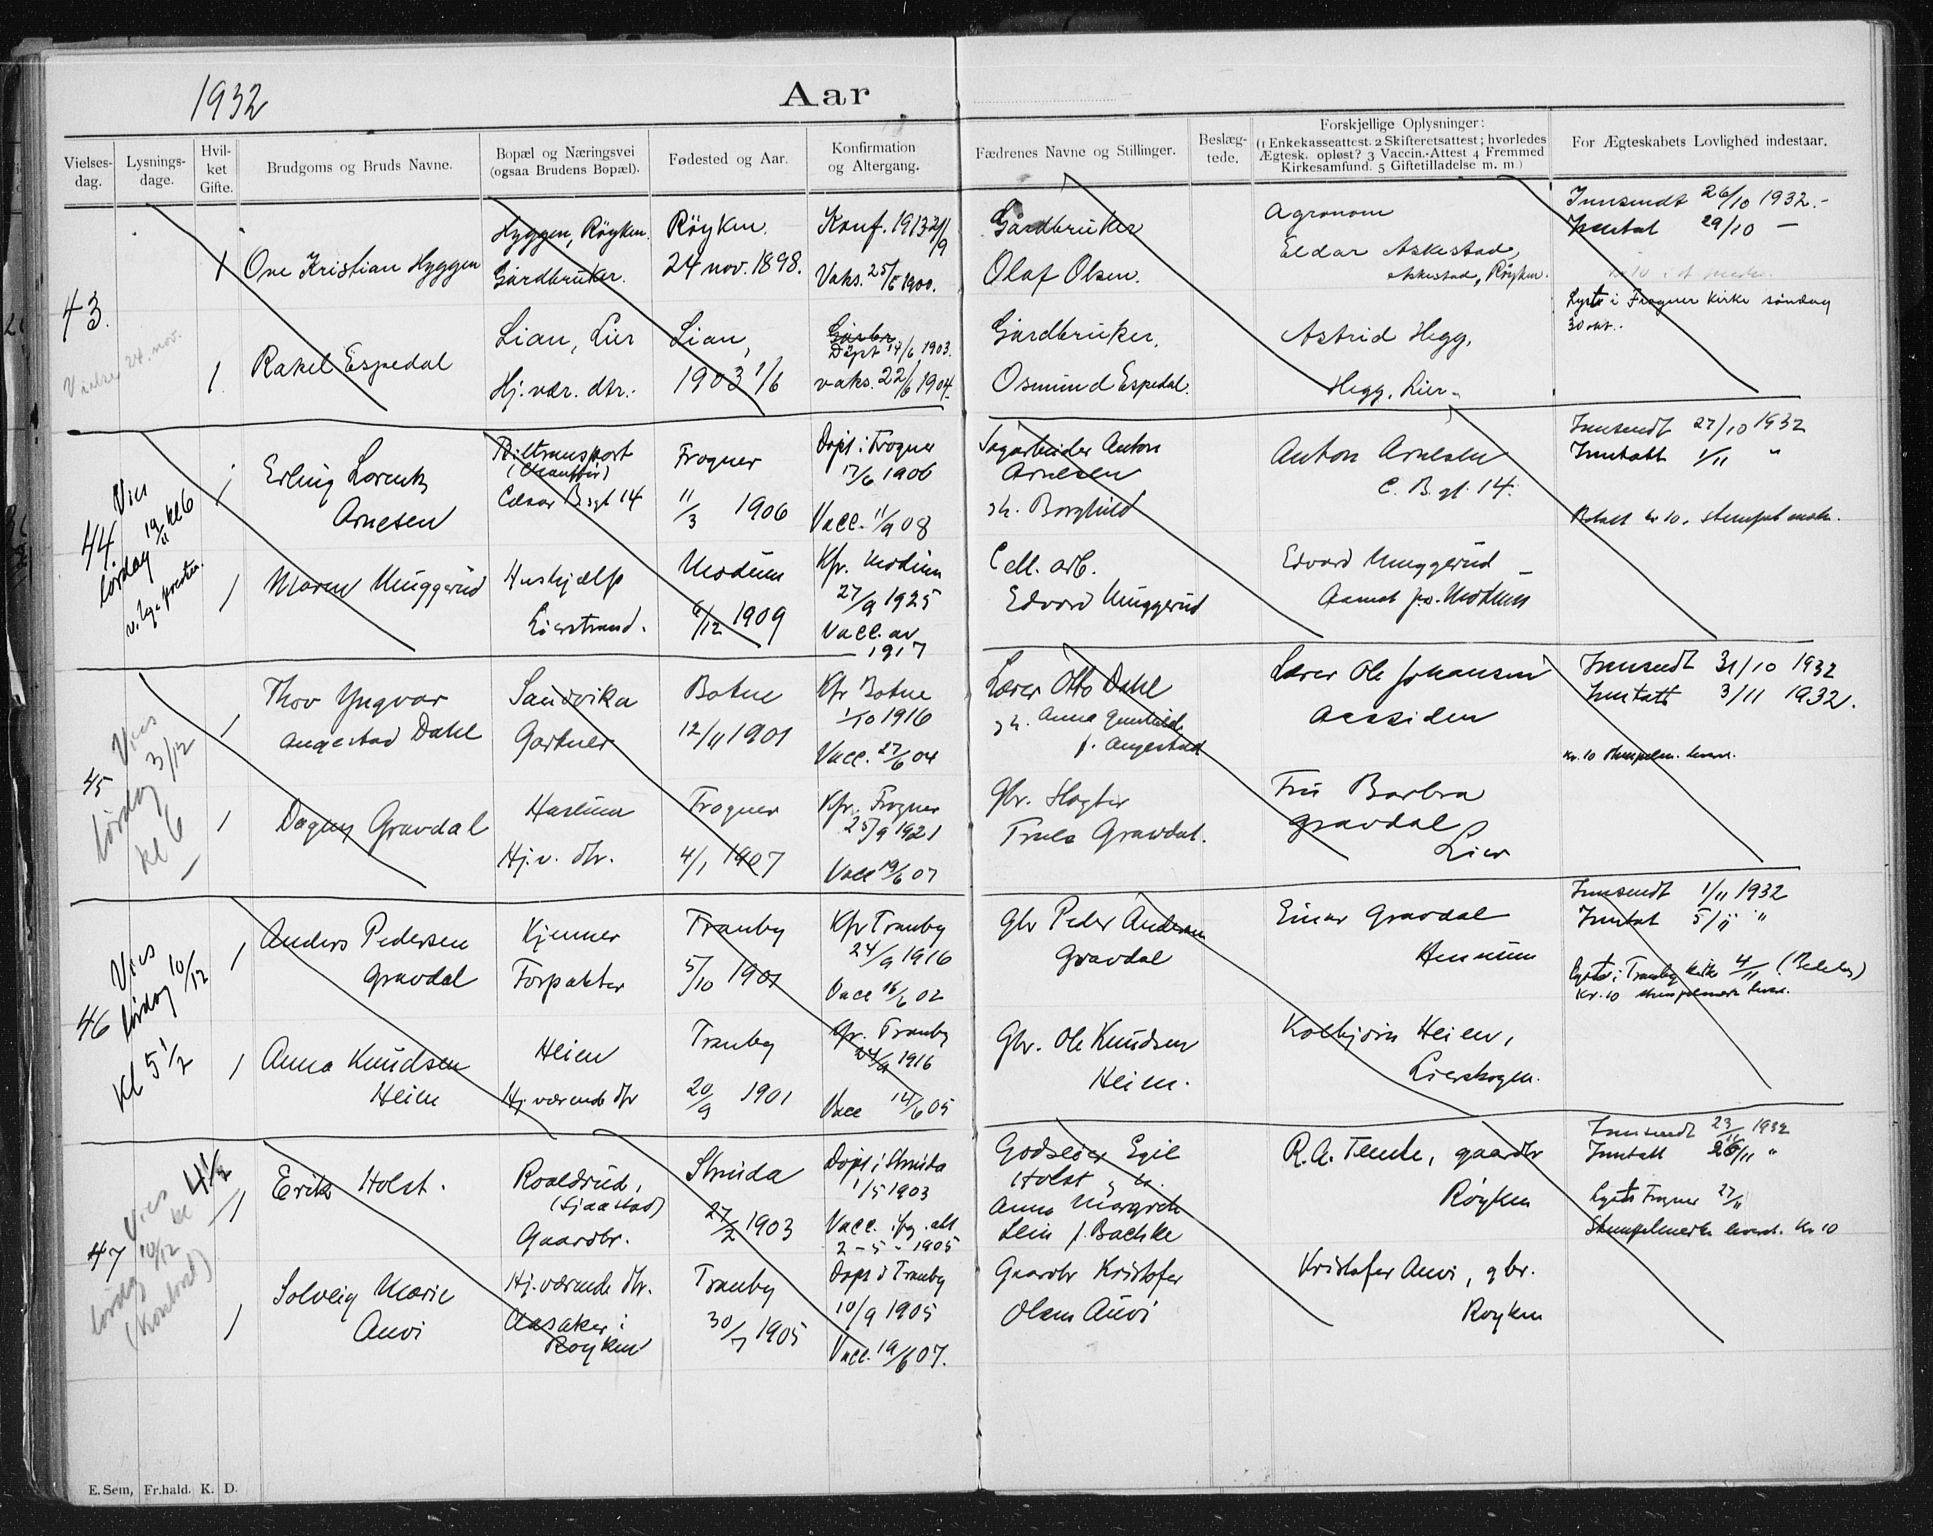 1932
Aar
Vielses-
dag.
Lysnings-
dage.
Hvil-
ket
Gifte.
Brudgoms og Bruds Navne.
Bopæl og Næringsvei
(ogsaa Brudens Bopæl).
Fødested og Aar.
Konfirmation
og Altergang.
Fædrenes Navne og Stillinger.
Beslæg-
tede.
Forskjellige Oplysninger:
(1 Enkekasseattest. 2 Skifteretsattest; hvorledes
Ægtesk. opløst? 3 Vaccin.-Attest 4 Fremmed
Kirkesamfund. 5 Giftetilladelse m. m.)
For Ægteskabets Lovlighed indestaar.
43.
24. nov.
1
Ove Kristian Hyggen
Hyggen, Røyken.
Gårdbruker.
Røyken.
24 nov. 1898.
Konf. 1913
Vaks. 25/5 1900.
Gårdbruker
Olaf Olsen.
Agronom
Eldar Askestad,
Askestad, Røyken.
Innsendt 26/10 1932.-
Inntat 29/10 -
Lyst i Frogner Kirke søndag
30 okt..
1
Rakel Espedal
Lian, Lier
Hj. vær. dtr.
Lian,
1903 1/6
Døpt 14/6 1903.
vaks. 22/6 1904.
Gårdbruker,
Osmund Espedal.
Astrid Hegg,
Hegg, Lier.
44.
Vies
lørdag 19/11 kl 6
1
Erling Lorentz
Arnesen
Biltransport
(Chauffør)
Frogner
11/3 1906
Døpt i Frogner
17/6 1906
Vacc. 11/9 08
Sagarbeider Anton
Arnesen
Borghild
Anton Arnesen
C. B. gt. 14.
Innsendt 27/10 1932
Inntatt 1/11 "
Betalt kr 10. Stempelmerke.
1
Maren Muggerud
Hushjælp
Lierstrand.
Modum
6/12 1909
Kfr. Modum
27/9 1925
Vacc. av
1917
Cell. arb.
Edvard Muggerud
Edvard Muggerud
Modum
45
Vies
lørdag 3/12
kl 6
1
Thov Yngvar
Angestad Dahl
Sandvika
Gartner
Botne
12/11 1901
Kfr Botne
1/10 1916
Vacc. 27/6 04
Lærer Otto Dahl
Anna Gunhild
f. Angestad
Lærer Ole Johansen
Aassiden
Innsendt 31/10 1932
Inntatt 3/11 1932.
Kr. 10 stempelm. levert.
1
Dagny Gravdal
Haslum
Hj. v. dtr.
Frogner
4/1 1907
Kfr. Frogner
25/9 1921
Vacc 19/6 07
Gbr. Slagter
Truls Gravdal.
Fru Barbra
Gravdal
Lier
46
Vies
lørdag 10/12
Kl 5 1/2
1
Anders Pedersen
Gravdal
Kjenner
Forpakter
Tranby
5/10 1901
Kfr Tranby
24/9 1916
Vacc 16/6 02
Gbr Peder Andersen
Gravdal
Einar Gravdal
Hennum
Innsendt 1/11 1932
Inntat 5/11 "
Lyst i Tranby kirke
Kr. 10 stempelmerke levert.
1
Anna Knudsen
Heien
Heien
Hj. værende dtr
Tranby
20/9 1901
Kfr. Tranby
24/9 1916
Vacc 14/6 05
Gbr. Ole Knudsen
Heien.
Kolbjørn Heien,
Lierskogen.
47
Vies
kl 4 1/2
lørdag 10/12
(Kontoret)
1
Erik Holst.
Roaldrud,
(Sjaastad)
Gaardbr.
Strinda
27/2 1903
Døpt i Strinda
1/5 1903
Vacc. ifg. att
2-5-1905
Godseier Egil
Holst
Anna Margrete
Lein f. Bachke
R. A. Temte, gaardbr
Røyken
Innsendt 23/11 1932
Inntatt 26/11 "
Lyst Frogner 27/11
Stempelmerke levert. Kr 10
1
Solveig Marie
Auvi
Hj. værende dtr.
Aasaker i
Røyken
Tranby
30/7 1905
Døpt i Tranby
10/9 1905
Vacc. 19/6 07.
Gaardbr Kristofer
Olsen Auvi
Kristofer Auvi, gbr.
Røyken
E. Sem, Fr.hald. K. D.